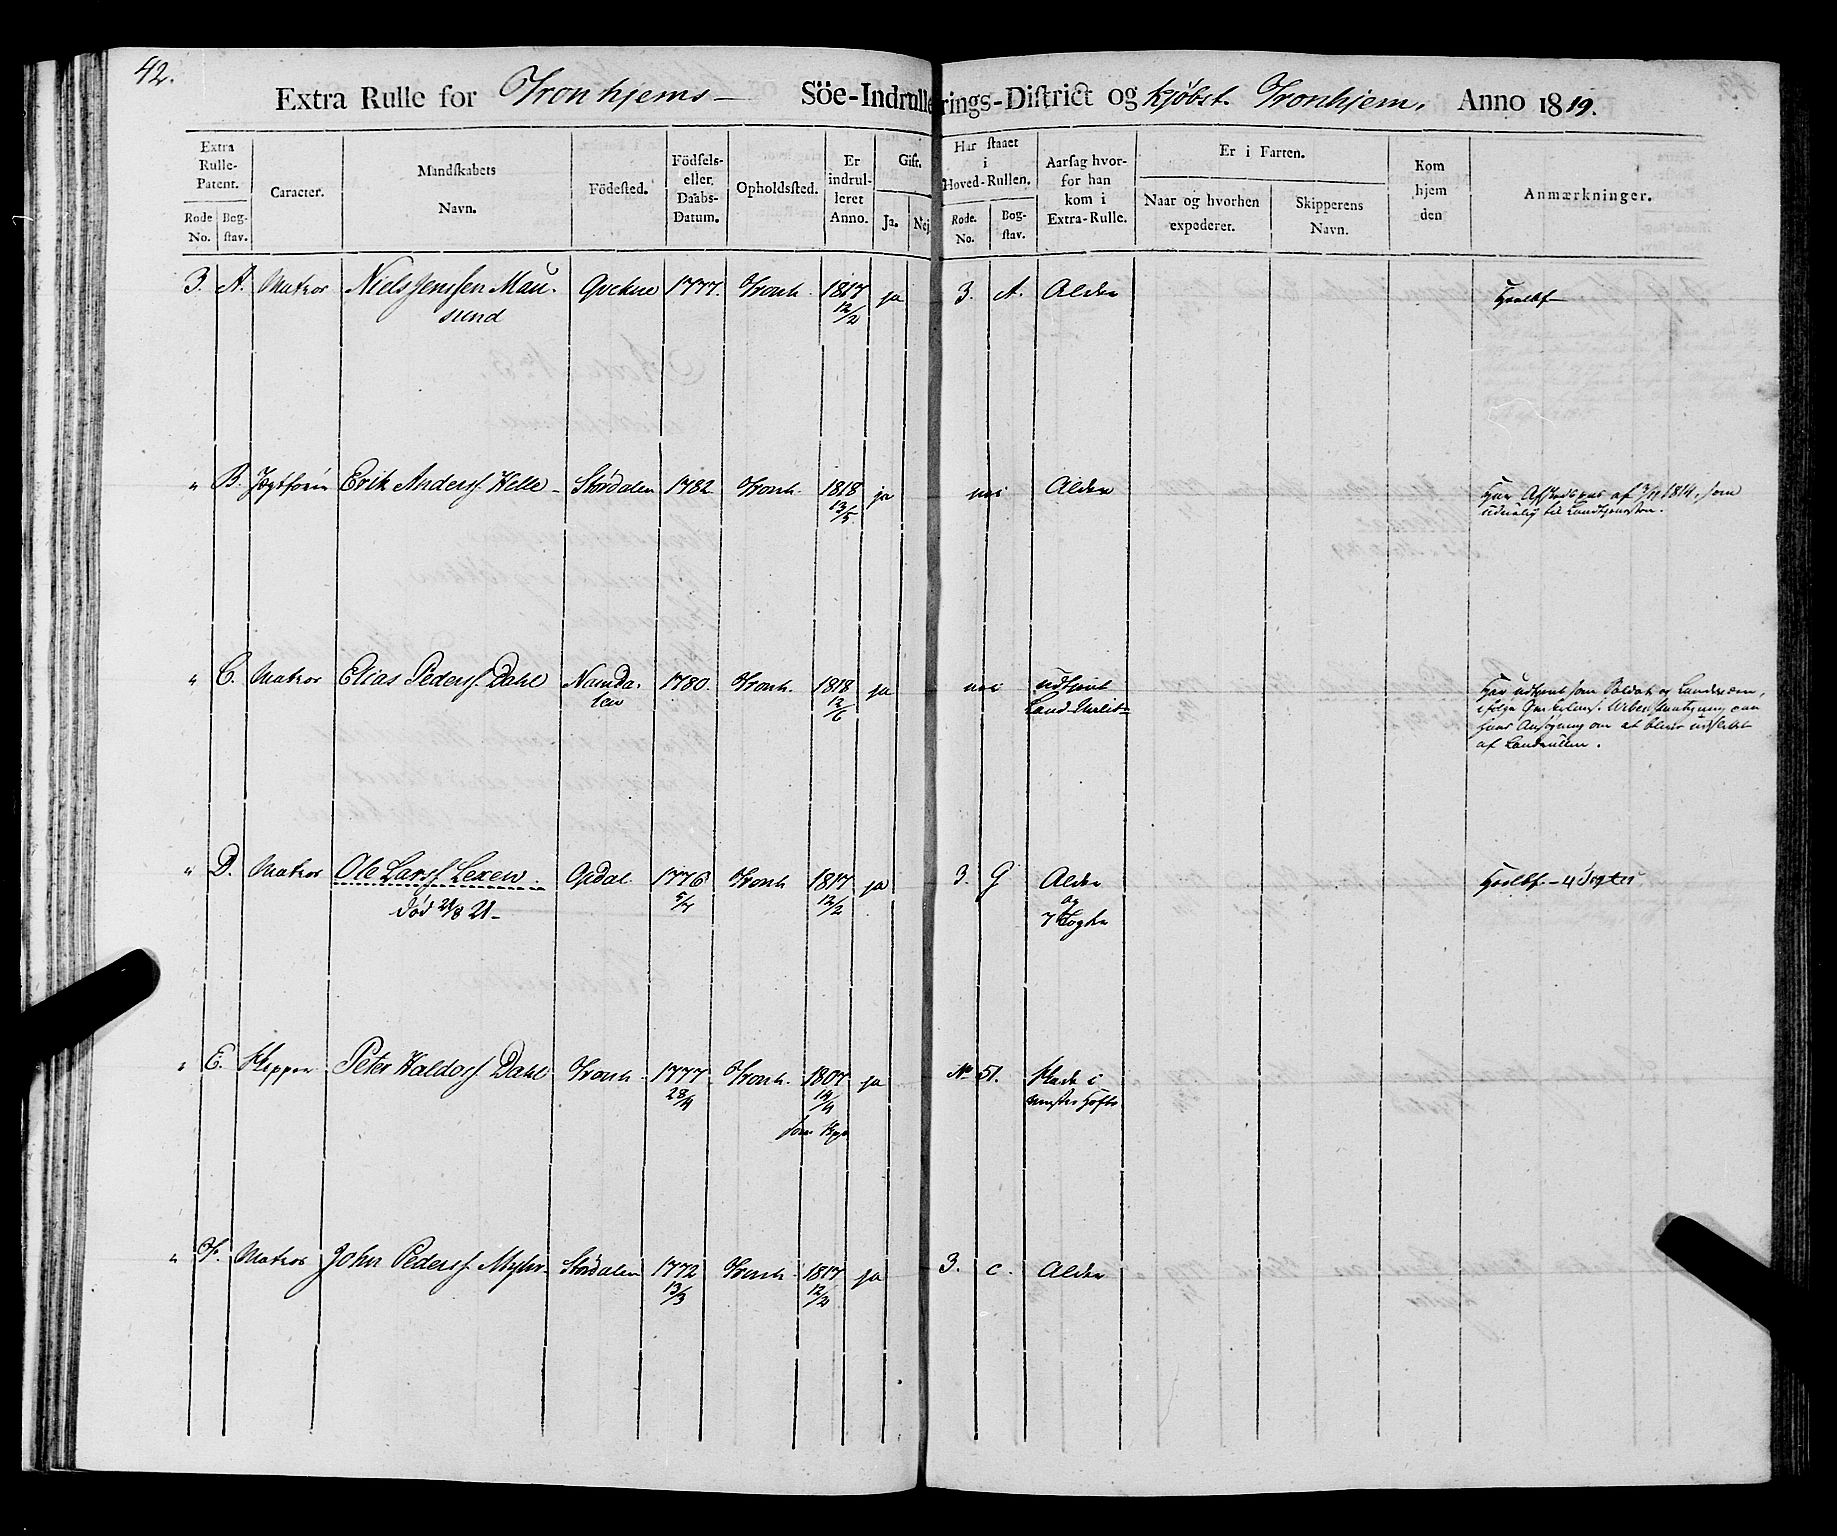 42.
Extra Rulle for Tronhjems Söe-Indrullerings-District og kjøbst. Tronhjem, Anno 1819.
Extra Rulle-Patent. Rode No. Bogstav.
Caracter.
Mandskabets Navn.
Födested.
Födsels- eller Daabs-Datum.
Opholdssted.
Er indrulleret Anno.
Gift. Ja. Nej.
Har staaet i Hoved-Rullen. Rode. No. Bogstav.
Aarsag hvorfor han kom i Extra-Rulle.
Er i Farten. Naar og hvorhen expederet. Skipperens Navn.
Kom hjem den
Anmærkninger.
3. A. Matros Niels Jenssen Mausund 1777. Tronh. 1817 12/2 ja 3. A. Alder
" B. Jegtfører Erik Anderss. Helle Stördalen 1782 Tronh. 1818 13/5 ja nei Alder Har Afskedspas af 3/11 1814, som
uduelig til Landtjenesten.
" C. Matros Elias Pederss. Dahl Namdalen 1780. Tronh. 1818 12/6 ja nei udtjent Land Milits
Har udtjent som Soldat og Landværn,
af Landrullen.
" D. Matros Ole Larss. Lexen Opdal 1776 5/7 Tronh 1817 12/2 ja 3. G Alder og 7 Togter 4 Togter
død 21/8 21
" E. Skipper Peter Haldoss. Dahl Tronh. 1777 28/4 Tronh. 1807 14/4 ja No 51. Skade i venstre Hofte
" F. Matros John Pederss. Myhr Stördalen 1772 13/3 Tronh 1817 12/2 ja 3. C. Alder